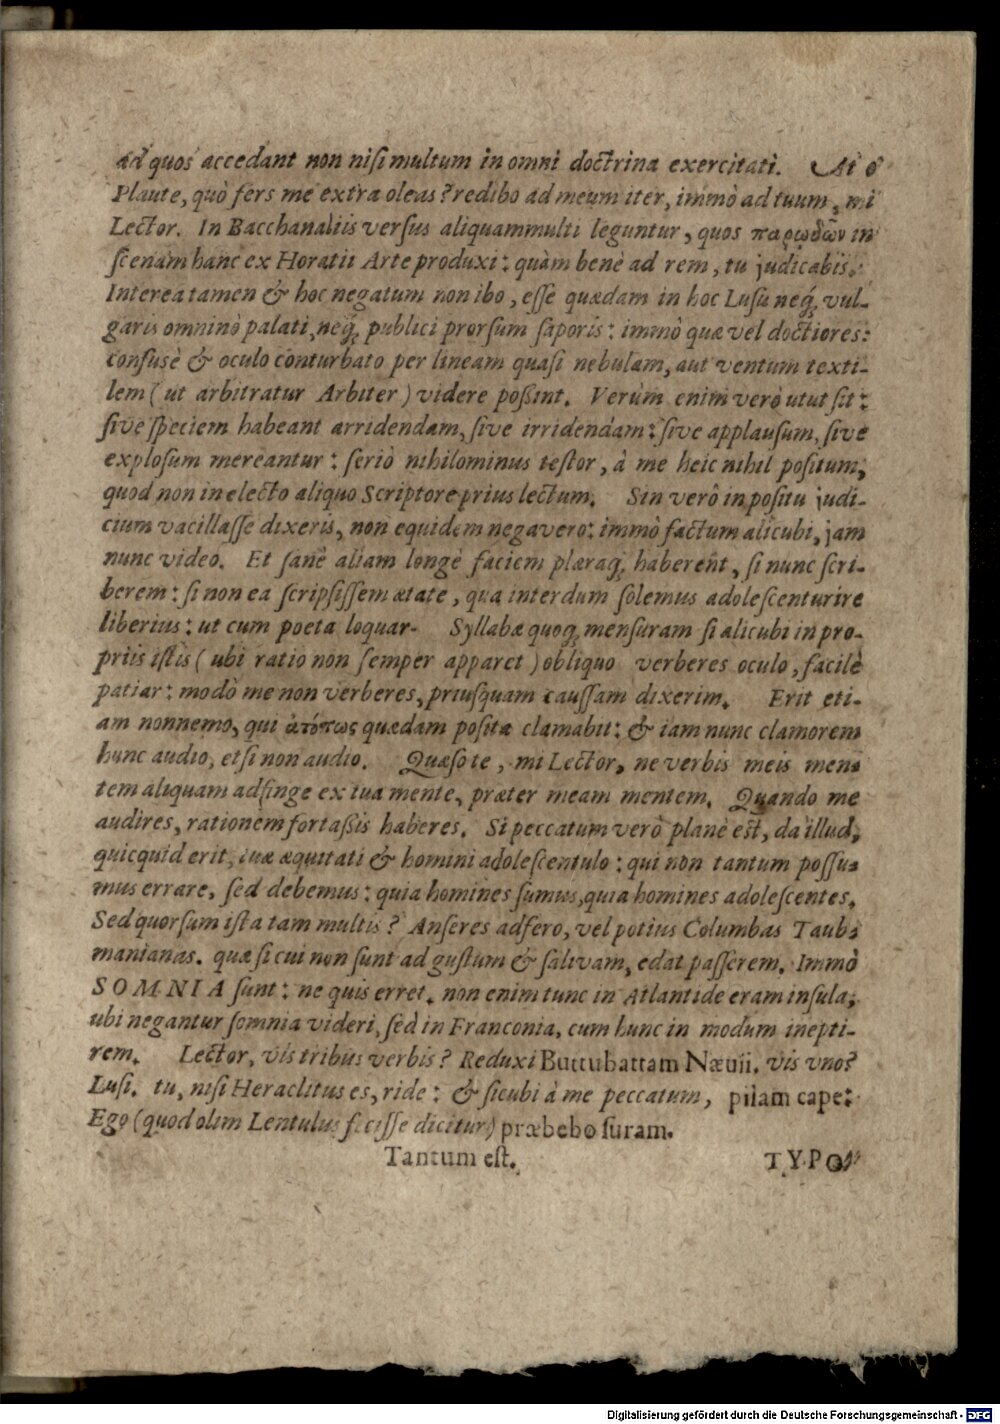 ad quos accedant non nisi multum in omni doctrina exercitati. At ô
Plaute, quò fers me extra oleas? redibo ad meum iter, immò ad tuum, mi
Lector. In Bacchanaliis versus aliquammulti leguntur, quos παρῳδῶν in
scenam hanc ex Horatii Arte produxi: quàm benè ad rem, tu judicabis.
Interea tamen & hoc negatum non ibo, esse quædam in hoc Lusu neq; vul-
garis omninò palati, neq; publici prorsum saporis: immò quæ vel doctiores:
confusè & oculo conturbato per lineam quasi nebulam, aut ventum texti-
lem (ut arbitratur Arbiter) videre poßint. Verùm enim verò utut sit:
sive speciem habeant arridendam, sive irridendam: sive applausum, sive
explosum mereantur: seriò nihilominus testor, à me heic nihil positum,
quod non in electo aliquo Scriptore prius lectum. Sin verô in positu judi-
cium vacillasse dixeris, non equidem negavero: immò factum alicubi, jam
nunc video. Et sanè aliam longè faciem plæraq; haberent, si nunc scri-
berem: si non ea scripsissem ætate, qua interdum solemus adolescenturire
liberius: ut cum poeta loquar. Syllabæ quoq; mensuram si alicubi in pro-
priis istis (ubi ratio non semper apparet) obliquo verberes oculo, facilè
patiar: modò me non verberes, priusquam caussam dixerim. Erit eti-
am nonnemo, qui ἀτόπως quædam posita clamabit: & iam nunc clamorem
hunc audio, etsi non audio. Quæso te, mi Lector, ne verbis meis men-
tem aliquam adfinge ex tua mente, præter meam mentem. Quando me
audires, rationem fortaßis haberes. Si peccatum verò planè est, da illud,
quicquid erit, tuæ æquitati & homini adolescentulo: qui non tantum possu-
mus errare, sed debemus: quia homines sumus, quia homines adolescentes.
Sed quorsum ista tam multis? Anseres adfero, vel potius Columbas Taub-
manianas. quæ si cui non sunt ad gustum & salivam, edat passerem. Immò
SOMNIA sunt: ne quis erret. non enim tunc in Atlantide eram insula,
ubi negantur somnia videri, sed in Franconia, cum hunc in modum inepti-
rem. Lector, vis tribus verbis? Reduxi Buttubattam Nævii. vis vno?
Lusi. tu, nisi Heraclitus es, ride: & sicubi à me peccatum, pilam cape:
Ego (quod olim Lentulus fecisse dicitur) præbebo suram.
Tantum est. TYPO-
Digitalisierung gefördert durch die Deutsche Forschungsgemeinschaft - DFG